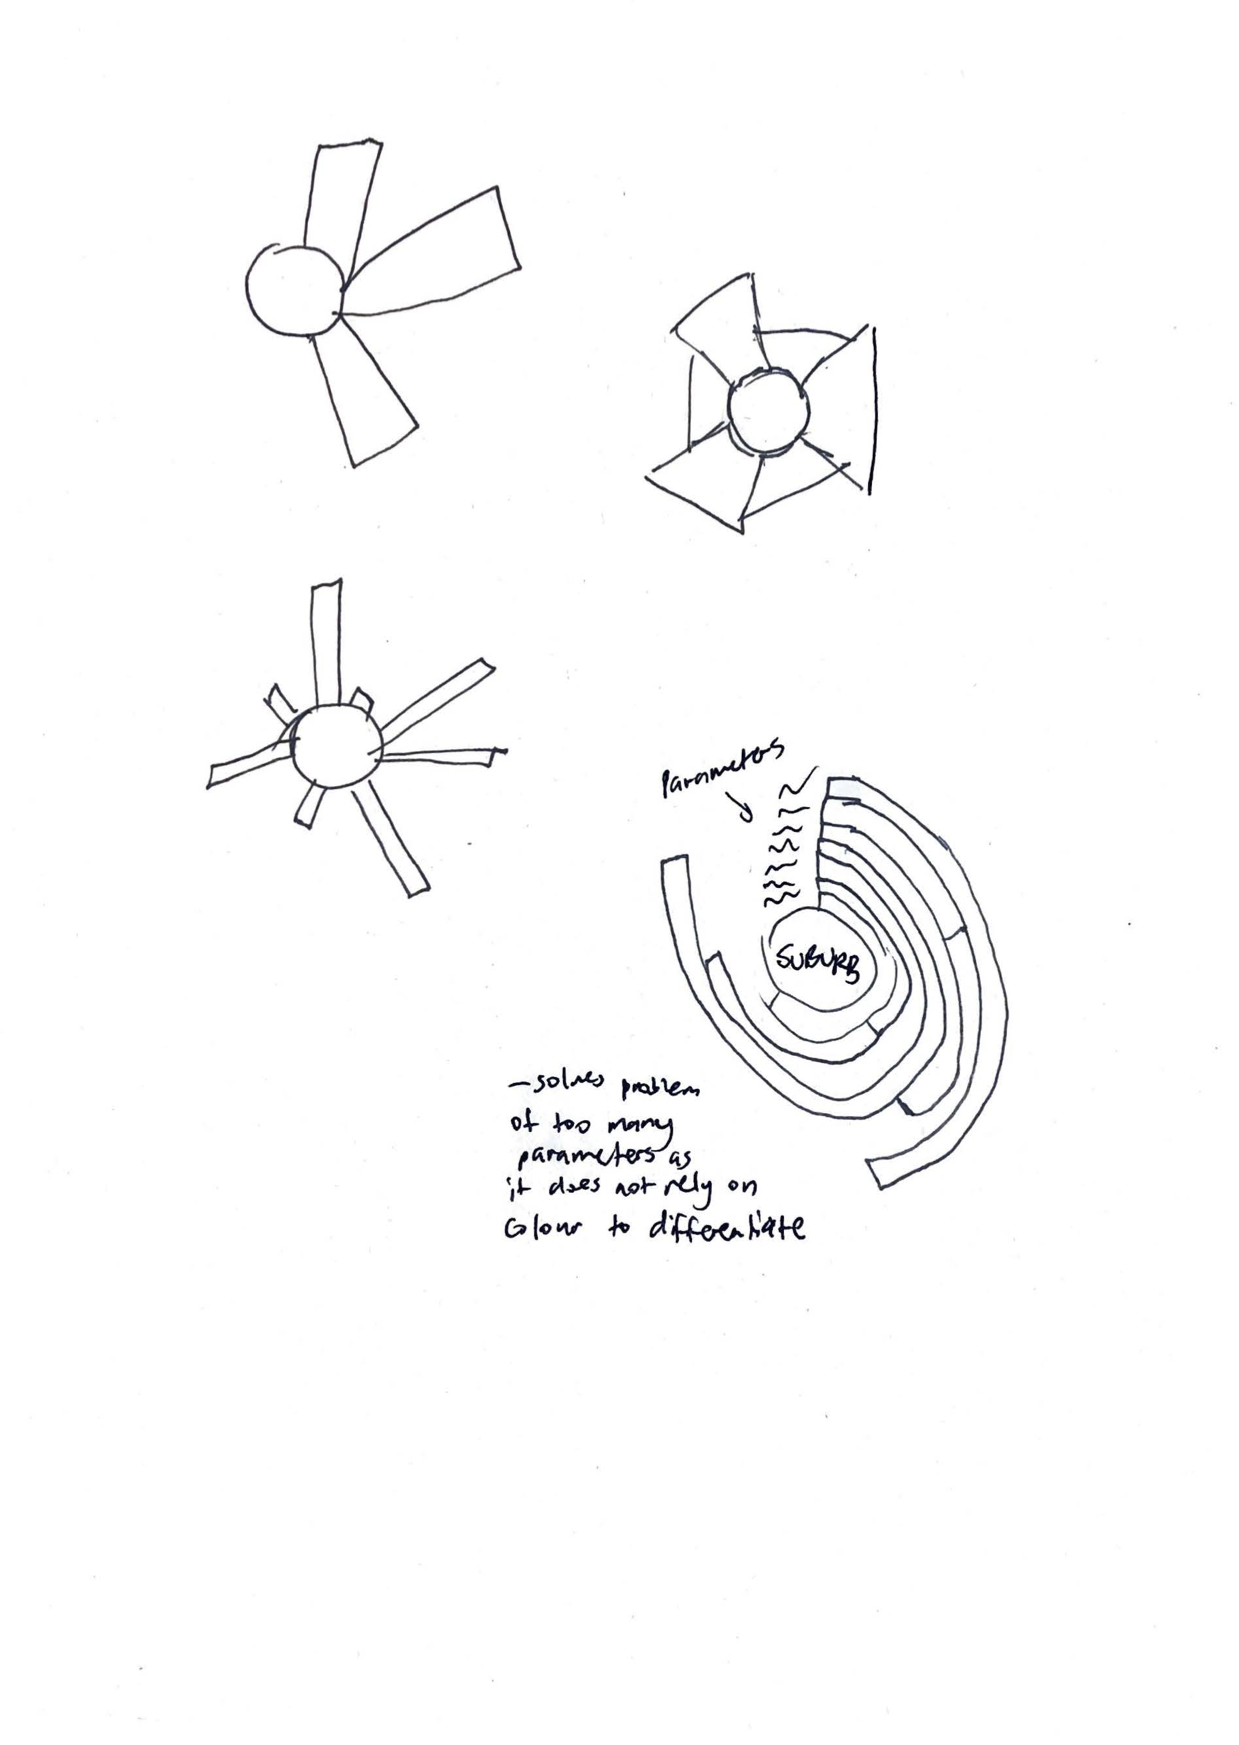 Parameters
SUBURB
- solves problem
of too many
parameters as
it does not rely on
colour to differentiate